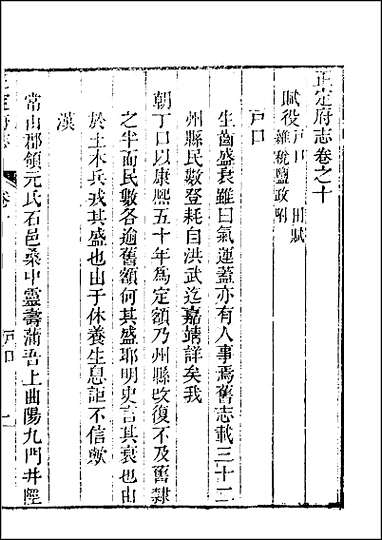 正定府志卷之十
賦役 戸口 田賦
雜稅鹽政附
戸口
生齒盛衰雖曰氣運蓋亦有人事焉舊志載三十二
州縣民數登耗自洪武迄嘉靖詳矣我
朝丁口以康熙五十年爲定額乃州縣改復不及舊隷
之半而民數各逾舊額何其盛耶明史言其衰也由
於土木兵戎其盛也由于休養生息詎不信歟
漢
常山郡領元氏石邑桑中靈壽蒲吾上曲陽九門井陘
正定府志
卷十
戸口
一